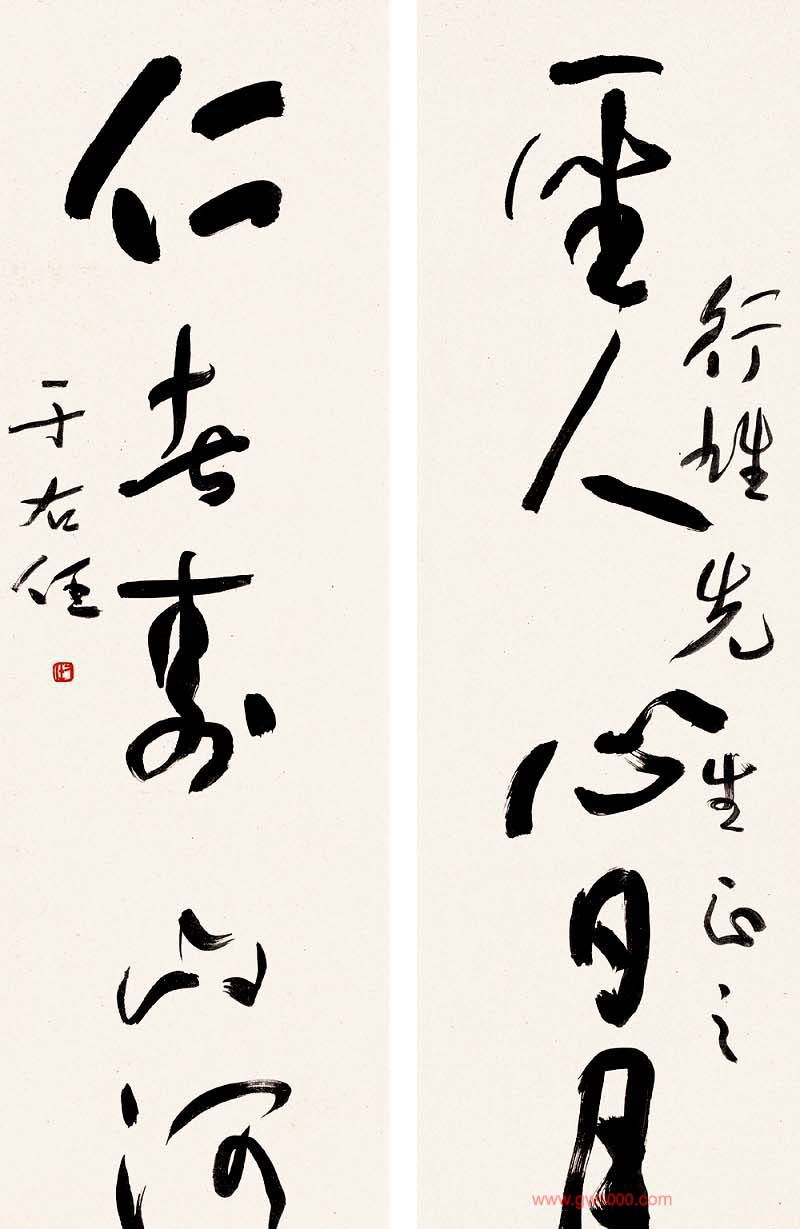 行雄先生正之
聖人心日月
仁者壽山河
于右任
www.gwh000.com